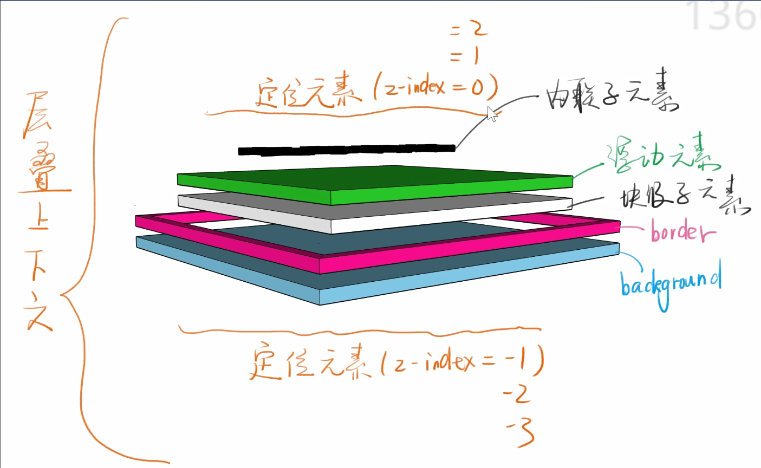 136
= 2
= 1
定位元素 (z-index = 0)
内联子元素
浮动元素
块级子元素
border
background
层叠上下文
定位元素 (z-index = -1)
-2
-3